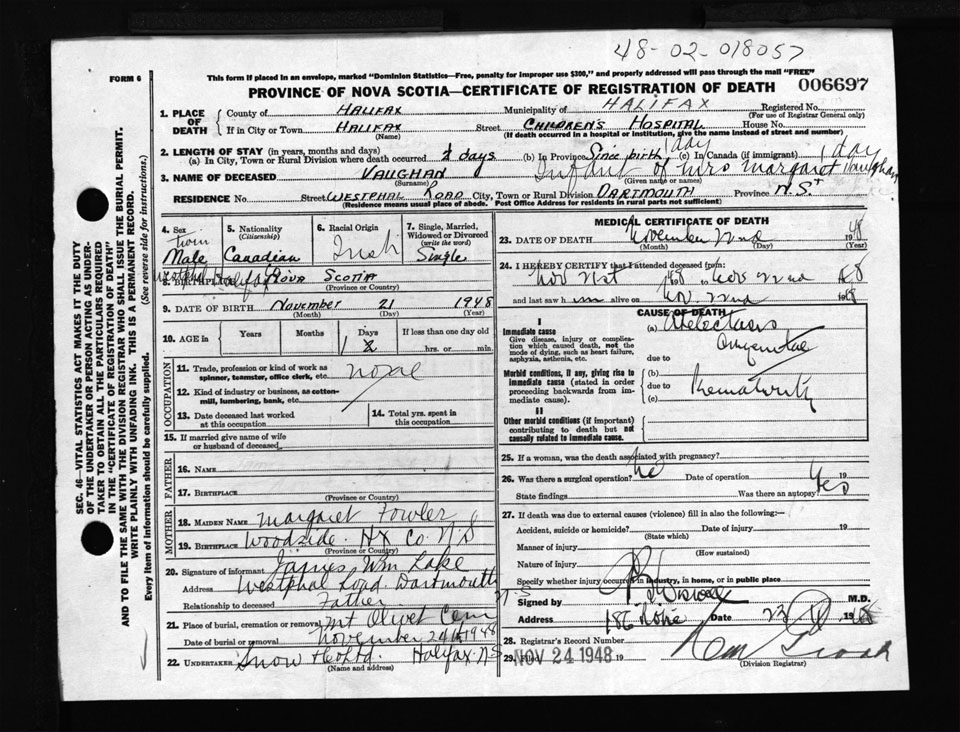 48-02-018057
FORM 6
This form if placed in an envelope, marked "Dominion Statistics—Free, penalty for improper use $300," and properly addressed will pass through the mail "FREE"
PROVINCE OF NOVA SCOTIA—CERTIFICATE OF REGISTRATION OF DEATH
006697
1. PLACE OF DEATH
County of HALIFAX Municipality of HALIFAX Registered No.
(For use of Registrar General only)
If in City or Town HALIFAX Street CHILDREN'S HOSPITAL House No.
(Name) (If death occurred in a hospital or institution, give the name instead of street and number)
2. LENGTH OF STAY (in years, months and days)
(a) In City, Town or Rural Division where death occurred days (b) In Province Since birth 1 day (c) In Canada (if immigrant) 1 day
3. NAME OF DECEASED VAUGHAN Infant of Mrs Margaret Vaughan
(Surname) (Given name or names)
RESIDENCE No. Street WESTPHAL ROAD City, Town or Rural Division DARTMOUTH Province N.S.
(Residence means usual place of abode. Post Office Address for residents in rural parts not sufficient)
4. Sex
twin
Male
5. Nationality
(Citizenship)
Canadian
6. Racial Origin
7. Single, Married, Widowed or Divorced
(write the word)
Single
8. BIRTHPLACE Halifax NOVA SCOTIA
(Province or Country)
9. DATE OF BIRTH November 21 1948
(Month) (Day) (Year)
10. AGE in
Years
Months
Days
1 2
If less than one day old
hrs. or min.
OCCUPATION
11. Trade, profession or kind of work as spinner, teamster, office clerk, etc. none
12. Kind of industry or business, as cotton-mill, lumbering, bank, etc.
13. Date deceased last worked at this occupation
14. Total yrs. spent in this occupation
15. If married give name of wife or husband of deceased
FATHER
16. NAME
17. BIRTHPLACE
(Province or Country)
MOTHER
18. MAIDEN NAME Margaret Fowler
19. BIRTHPLACE Woodside Hx Co N S
(Province or Country)
20. Signature of informant James Wm Lake
Address Westphal Road Dartmouth N-S
Relationship to deceased Father
21. Place of burial, cremation or removal Mt Olivet Cem
Date of burial or removal November 24th 1948
22. UNDERTAKER Snow & Co Ltd. Halifax N S
(Name and address)
MEDICAL CERTIFICATE OF DEATH
23. DATE OF DEATH November 22nd 1948
(Month) (Day) (Year)
24. I HEREBY CERTIFY that I attended deceased from:
Nov 21st to Nov 22nd 48
and last saw h im alive on Nov. 22nd 1948
CAUSE OF DEATH
I
Immediate cause
Give disease, injury or complication which caused death, not the mode of dying, such as heart failure, asphyxia, asthenia, etc.
(a) Atelectasis
due to
Morbid conditions, if any, giving rise to immediate cause (stated in order proceeding backwards from immediate cause).
(b)
due to Prematurity
(c)
II
Other morbid conditions (if important) contributing to death but not causally related to immediate cause.
25. If a woman, was the death associated with pregnancy?
26. Was there a surgical operation? No Date of operation 19
State findings Was there an autopsy? Yes
27. If death was due to external causes (violence) fill in also the following:—
Accident, suicide or homicide? Date of injury 19
(State which)
Manner of injury
(How sustained)
Nature of injury
Specify whether injury occurred in industry, in home, or in public place
Signed by M.D.
Address 186 Date 23 1948
28. Registrar's Record Number
29. Filed NOV 24 1948 19
(Division Registrar)
SEC. 46—VITAL STATISTICS ACT MAKES IT THE DUTY OF THE UNDERTAKER OR PERSON ACTING AS UNDERTAKER TO OBTAIN ALL THE PARTICULARS REQUIRED IN THE "CERTIFICATE OF REGISTRATION OF DEATH" AND TO FILE THE SAME WITH THE DIVISION REGISTRAR WHO SHALL ISSUE THE BURIAL PERMIT.
WRITE PLAINLY WITH UNFADING INK. THIS IS A PERMANENT RECORD.
Every item of Information should be carefully supplied. (See reverse side for instructions.)